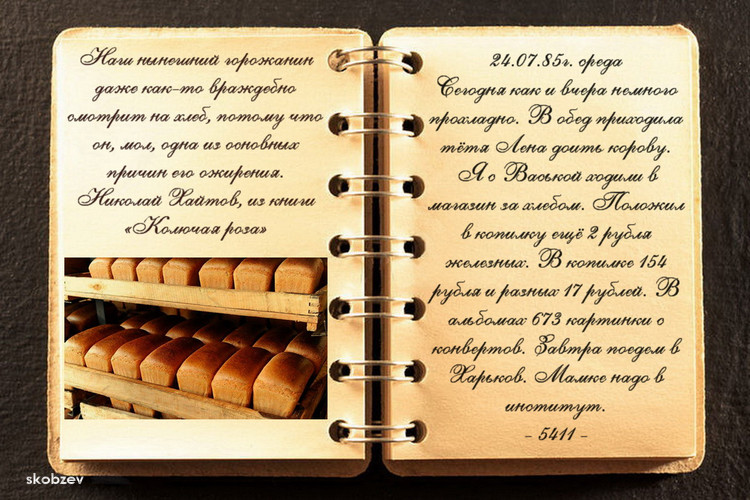 Наш нынешний горожанин
даже как-то враждебно
смотрит на хлеб, потому что
он, мол, одна из основных
причин его ожирения.
Николай Хайтов, из книги
«Колючая роза»
24.07.85г. среда
Сегодня как и вчера немного
прохладно. В обед приходила
тётя Лена доить корову.
Я с Васькой ходили в
магазин за хлебом. Положил
в копилку ещё 2 рубля
железных. В копилке 154
рубля и разных 17 рублей. В
альбомах 673 картинки с
конвертов. Завтра поедем в
Харьков. Мамке надо в
институт.
- 5411 -
skobzev